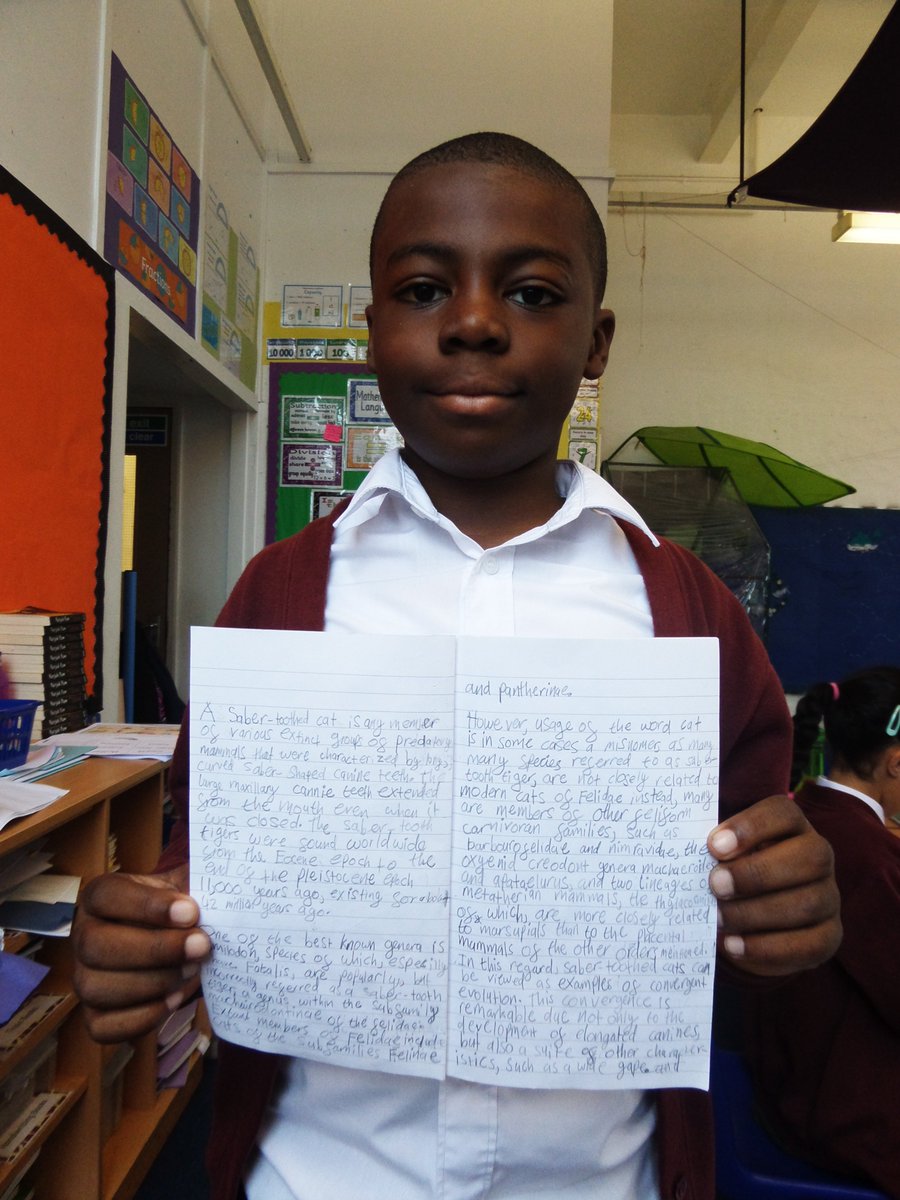 Fractions
Capacity
10 000
1 000
100
exit
clear
Subtraction
Division
divide
share
group equally
A Saber-toothed cat is any member
of various extinct groups of predatory
mammals that were characterized by long,
curved saber shaped canine teeth. the
large maxillary cannie teeth extended
from the mouth even when it
was closed. The saber-tooth
tigers were found worldwide
from the Eocene epoch to the
end of the pleistocene epoch
11,000 years ago, existing for about
42 million years ago.
One of the best known genera is
smilodon, species of which, especially
Fatalis, are popularly, but
incorrectly referred as a saber-tooth
tiger, a genus within the subfamily
of the felidae.
Extant members of Felidae include
cats of the subfamilies Felinae
and pantherinae.
However, usage of the word cat
is in some cases a misnomer as many
many species referred to as saber
tooth tiger, are not closely related to
modern cats of Felidae instead, many
are members of other feliform
carnivoran families, such as
barbourofelidae and nimravidae, the
oxyenid creodont genera machaeroides
and apataelurus, and two lineages of
metatherian mammals, the
of which, are more closely related
to marsupials than to the placental
mammals of the other orders mentioned.
In this regard, saber-toothed cats can
be viewed as examples of convergent
evolution. This convergence is
remarkable due not only to the
development of elongated canines,
but also a suite of other character-
istics, such as a wide gape and